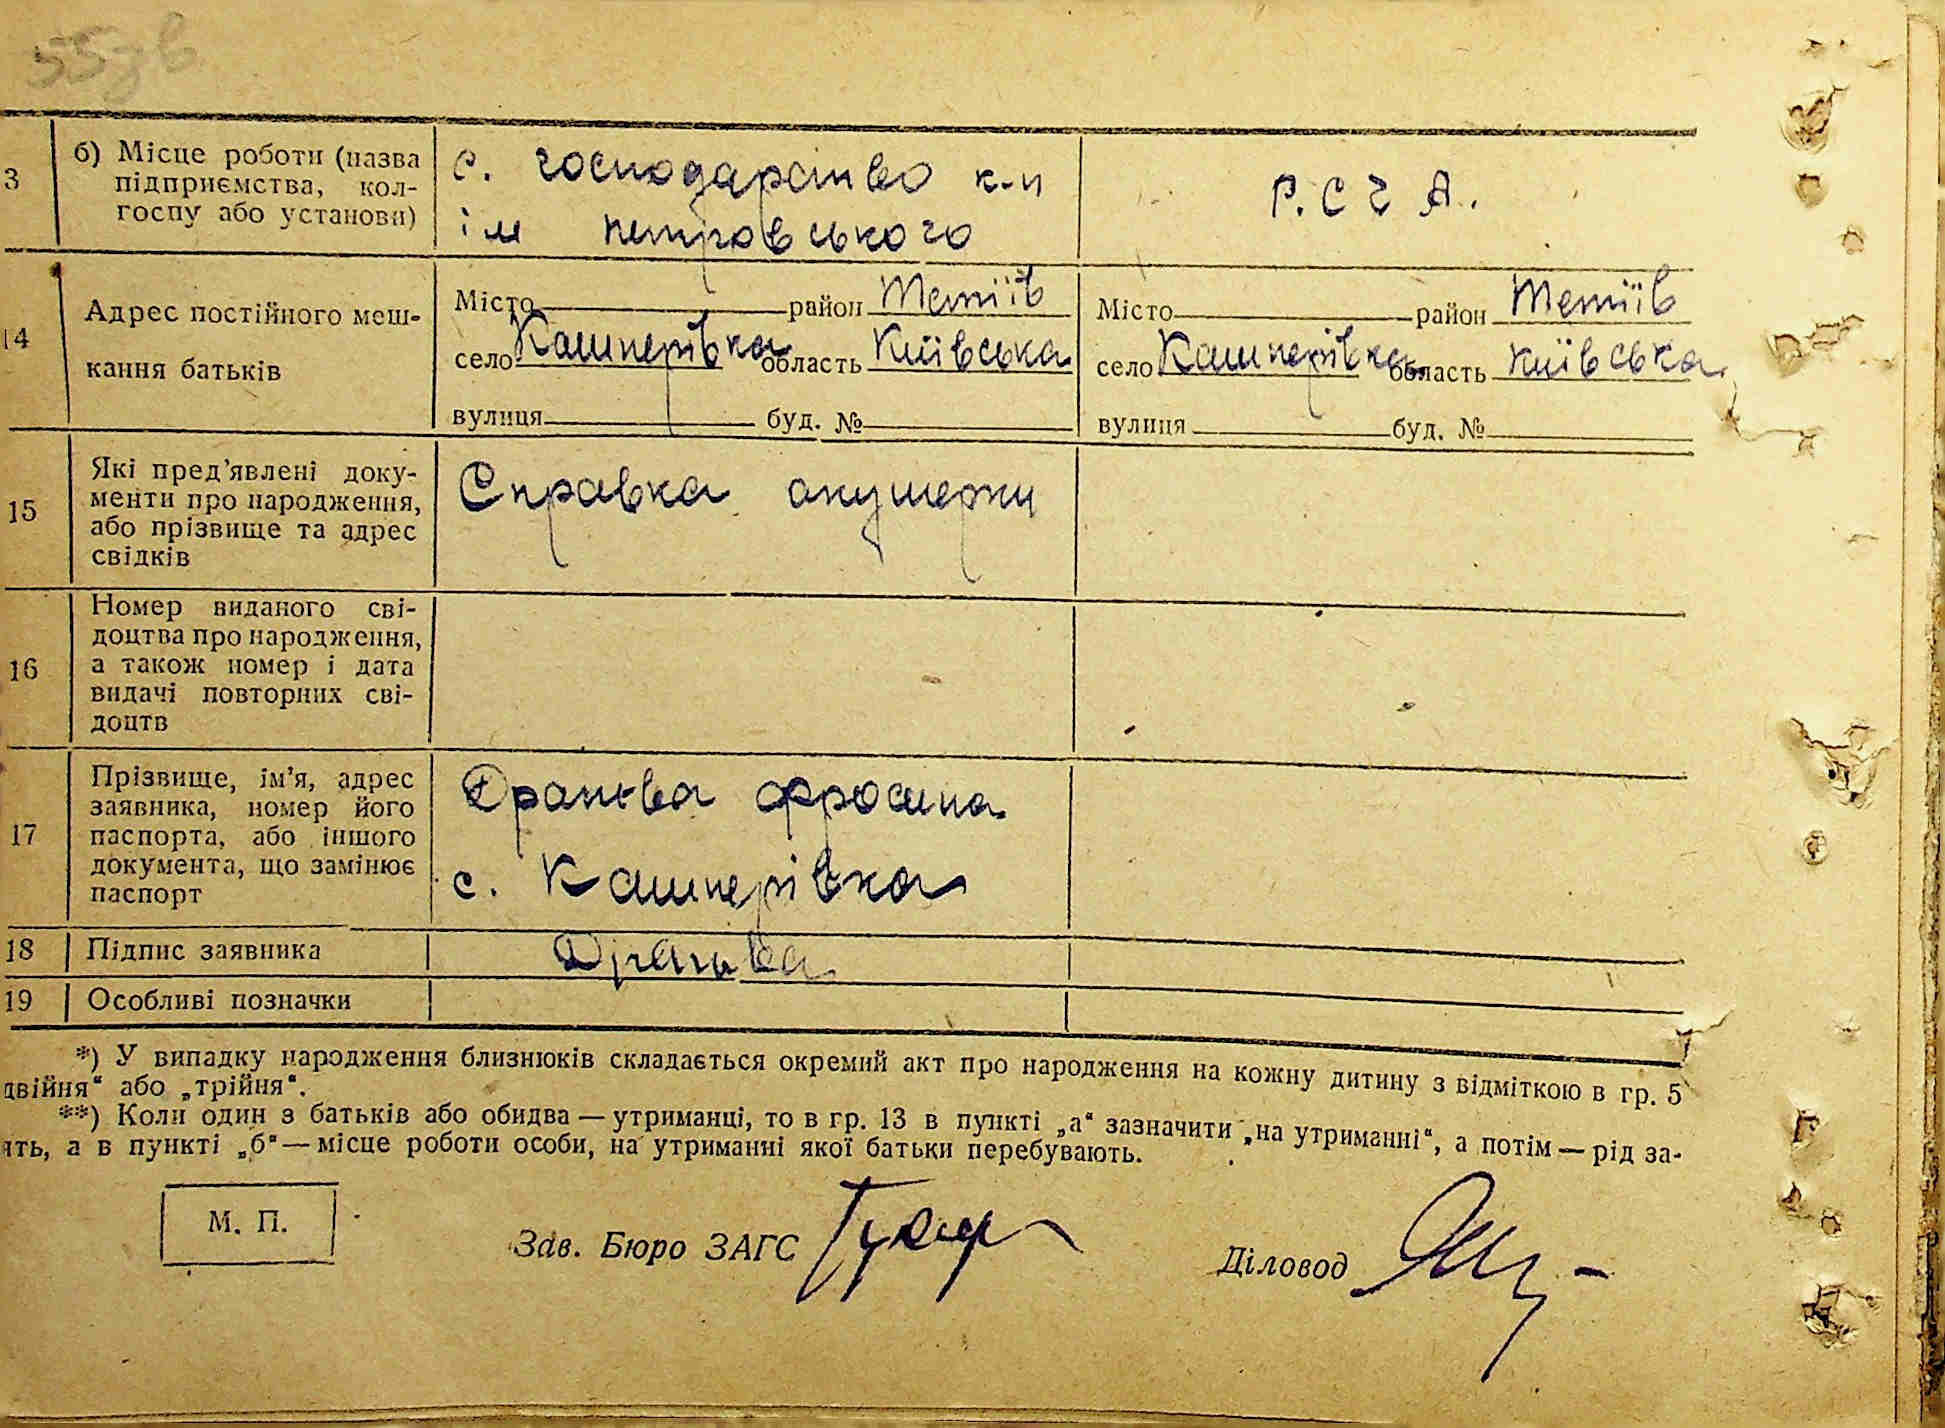 55зв
3 б) Місце роботи (назва підприємства, кол-
госпу або установи)
с. господарство к-п
ім петровського
Р.С Ч А.
14 Адрес постійного меш-
кання батьків
Місто район Тетіїв
село Кашперівка область Київська
вулиця буд. №
Місто район Тетіїв
село Кашперівка область Київська
вулиця буд. №
15 Які пред'явлені доку-
менти про народження,
або прізвище та адрес
свідків
Справка акушерки
16 Номер виданого сві-
доцтва про народження,
а також номер і дата
видачі повторних сві-
доцтв
17 Прізвище, ім'я, адрес
заявника, номер його
паспорта, або іншого
документа, що замінює
паспорт
Драньва Фросина
с. Кашперівка
18 Підпис заявника Драньва
19 Особливі позначки
*) У випадку народження близнюків складається окремий акт про народження на кожну дитину з відміткою в гр. 5
двійня“ або „трійня“.
**) Коли один з батьків або обидва — утриманці, то в гр. 13 в пункті „а“ зазначити „на утриманні“, а потім — рід за-
ять, а в пункті „б“ — місце роботи особи, на утриманні якої батьки перебувають.
М. П.
Зав. Бюро ЗАГС
Діловод